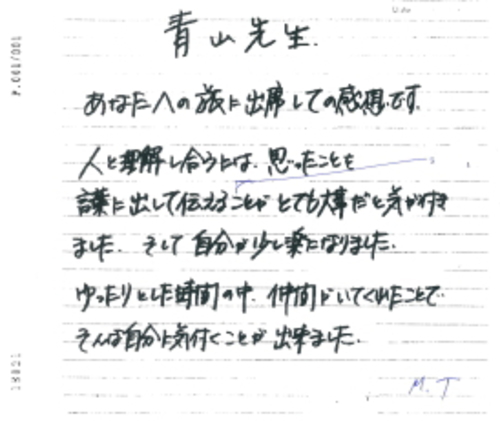 青山先生.
あなたへの旅に出席しての感想です.
人と理解し合うには、思ったことを
言葉に出して伝えることがとても大事だと気が付き
ました. そして自分が少し楽になりました.
ゆったりとした時間の中、仲間がいてくれたことで
そんな自分に気付くことが出来ました.
M.T
P.001/001